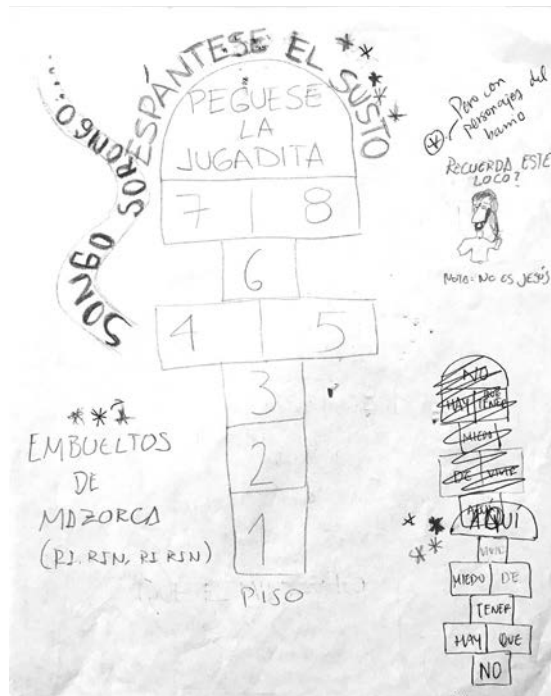 ESPÁNTESE EL SUSTO
SONGO SORONGO...
PEGUESE
LA
JUGADITA
7 8
6
4 5
3
2
1
PISO
***
EMBUELTOS
DE
MAZORCA
(RI. RIN, RI RIN)
Pero con
personajes del
barrio
RECUERDA ESTE
LOCO?
NOTA: NO ES JESÚS
NO
HAY QUE TENER
MIEDO
DE VIVIR
AQUÍ
AQUÍ
VIVIR
MIEDO DE
TENER
HAY QUE
NO